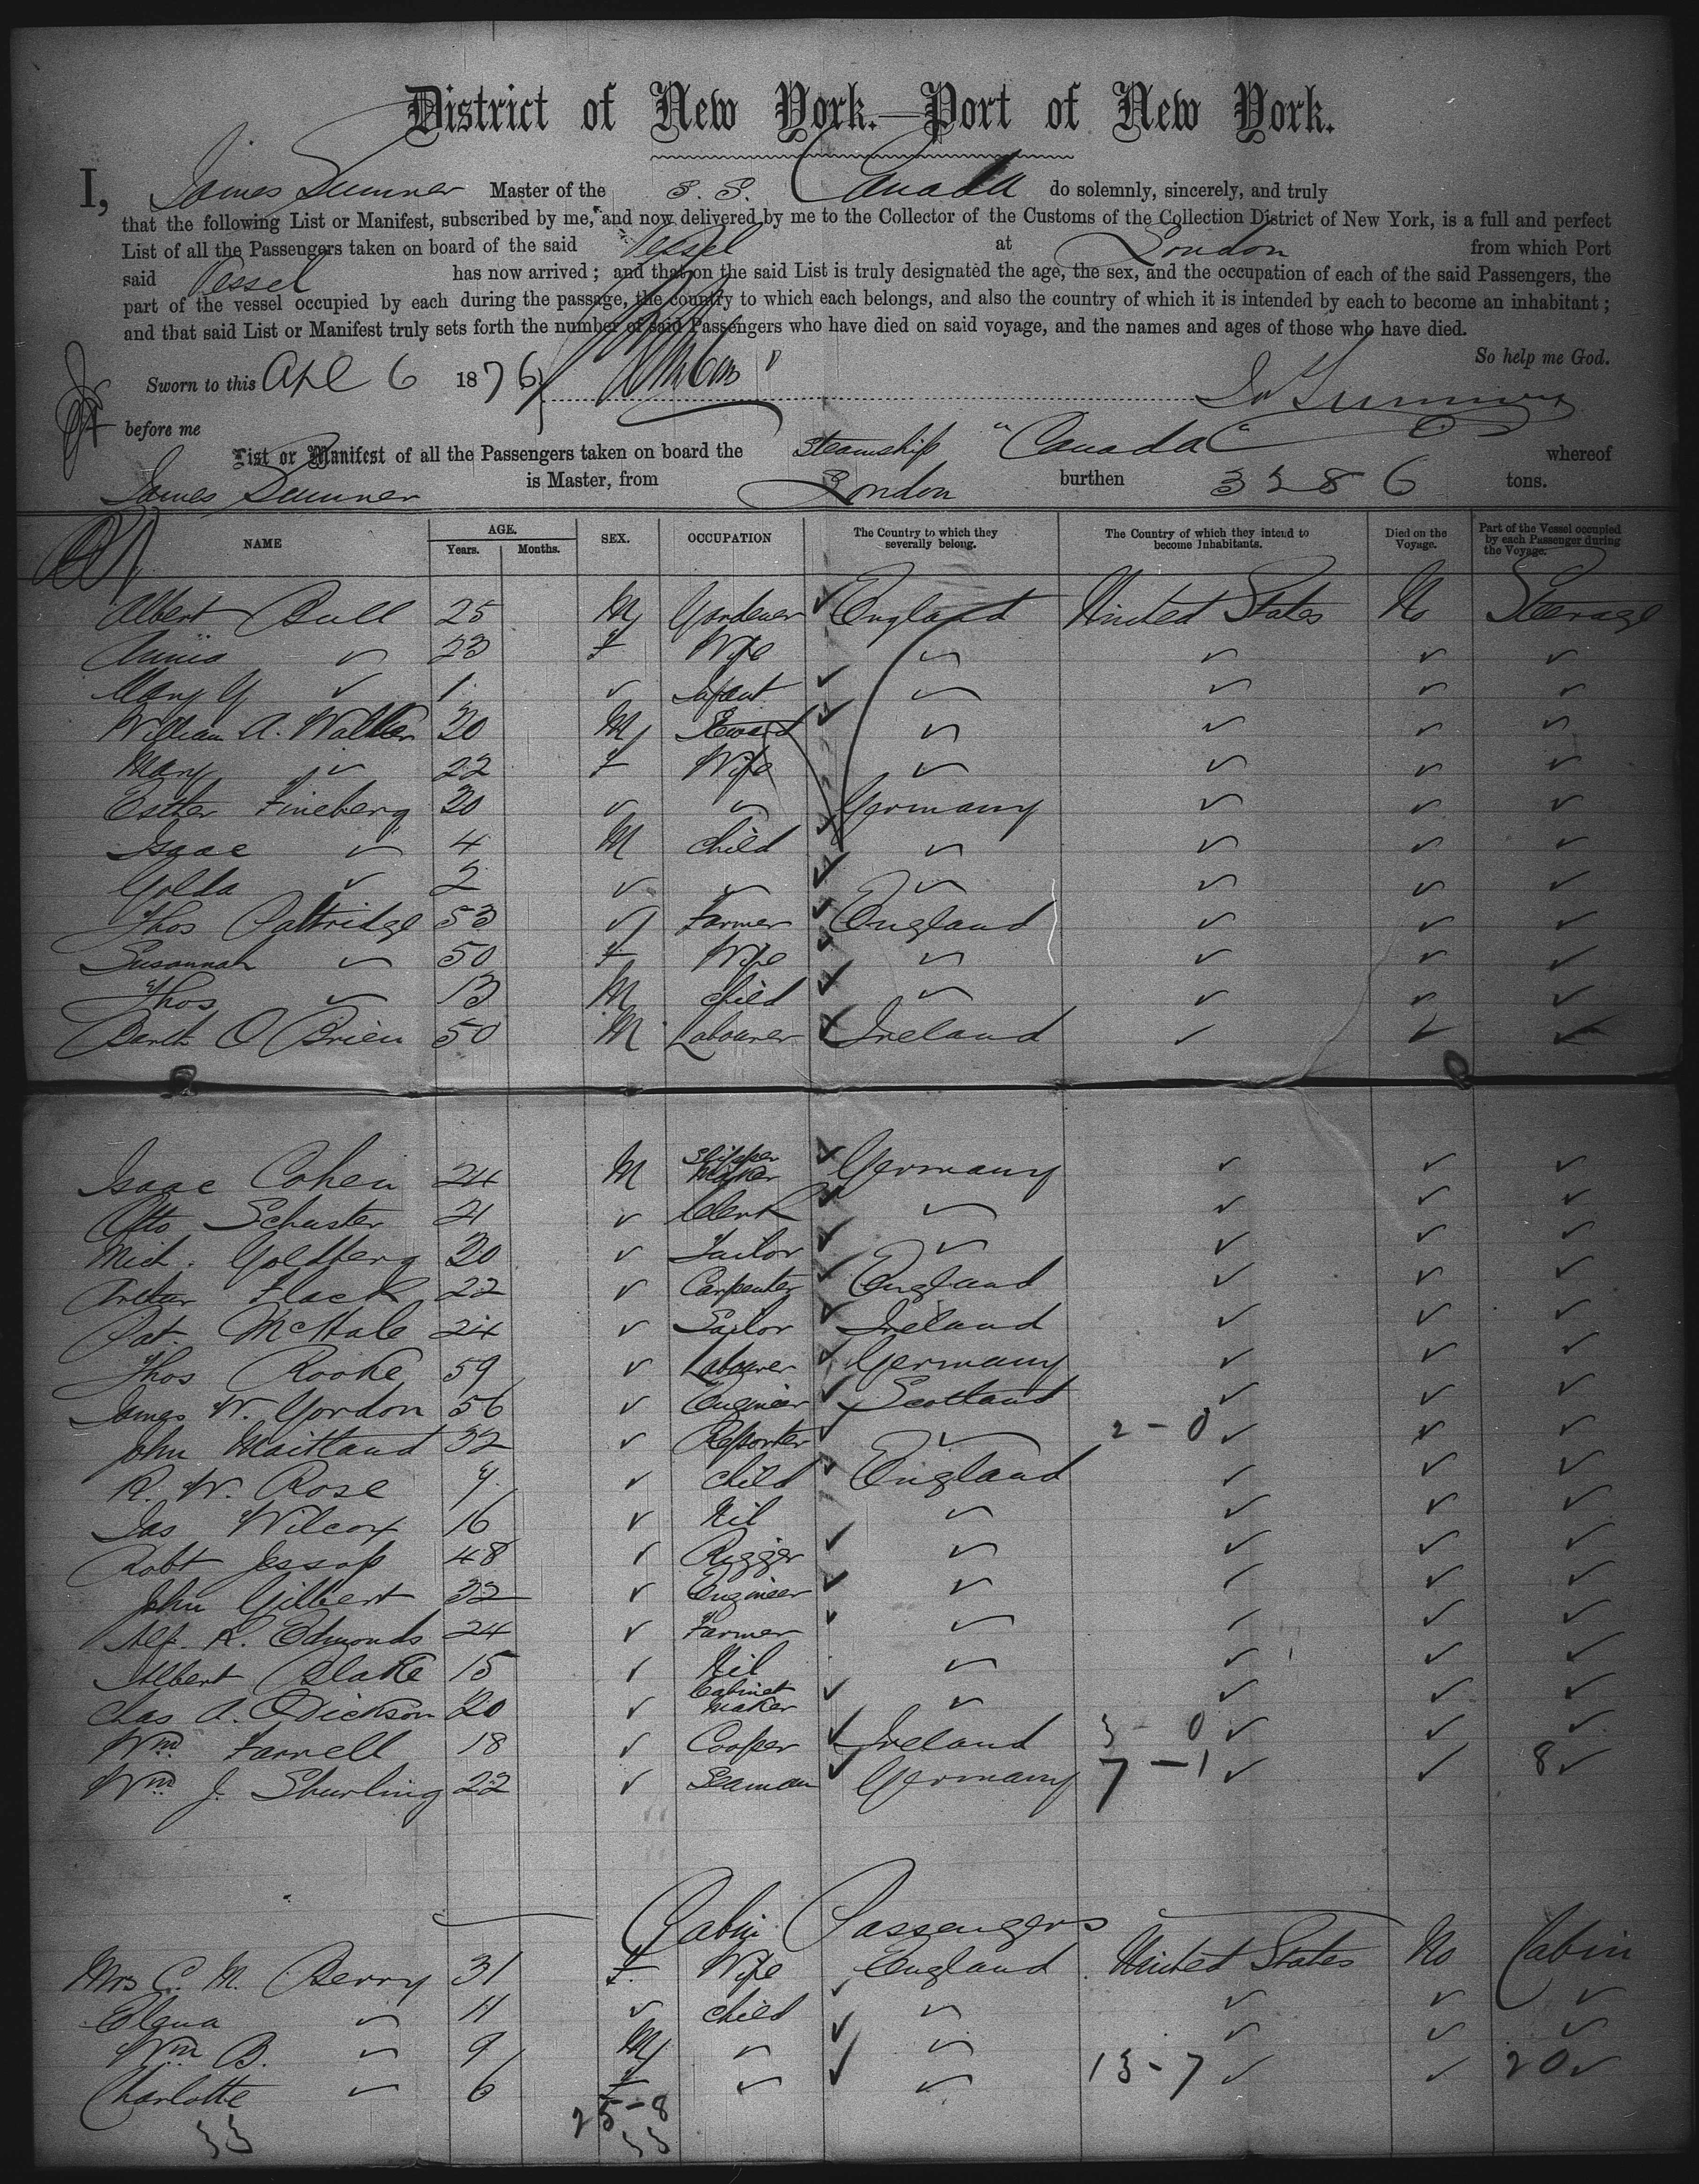 District of New York.—Port of New York.
I, James Sumner Master of the S. S. Canada do solemnly, sincerely, and truly
that the following List or Manifest, subscribed by me, and now delivered by me to the Collector of the Customs of the Collection District of New York, is a full and perfect
List of all the Passengers taken on board of the said Vessel at London from which Port
said Vessel has now arrived; and that on the said List is truly designated the age, the sex, and the occupation of each of the said Passengers, the
part of the vessel occupied by each during the passage, the country to which each belongs, and also the country of which it is intended by each to become an inhabitant;
and that said List or Manifest truly sets forth the number of said Passengers who have died on said voyage, and the names and ages of those who have died.
So help me God.
Sworn to this Apl 6 1876 Js Sumner
before me
List or Manifest of all the Passengers taken on board the Steamship "Canada" whereof
James Sumner is Master, from London burthen 3286 tons.
NAME AGE. Years. Months. SEX. OCCUPATION The Country to which they severally belong. The Country of which they intend to become Inhabitants. Died on the Voyage. Part of the Vessel occupied by each Passenger during the Voyage.
Albert Bull 25 M Gardener England United States No Steerage
Annie 23 F Wife
Mary 1 Infant
William A. Walker 20 M Steward
Mary 22 F Wife
Esther Fineberg 20 Germany
Isaac 4 M Child
Golda 2
Thos Pattridge 53 Farmer England
Susannah 50 F Wife
Thos 13 M Child
Barth O'Brien 50 M Labourer Ireland
Isaac Cohen 24 M Slipper Maker Germany
Otto Schuster 21 Clerk
Mich. Goldberg 20 Tailor
Arthur Flack 22 Carpenter England
Pat. McHale 24 Sailor Ireland
Thos Rooke 59 Labourer Germany
James W. Gordon 56 Engineer Scotland
John Maitland 32 Reporter 2-0
R. W. Rose 9 Child England
Jas Wilcox 16 Nil
Robt Jessop 48 Rigger
John Gilbert 32 Engineer
Alf. R. Edmonds 24 Farmer
Albert Blake 15 Nil
Chas A. Dickson 20 Cabinet Maker
Wm Farrell 18 Cooper Ireland 3-0
Wm J. Shurling 22 Seaman Germany 7-1 8
Cabin Passengers
Mrs C. M. Berry 31 F. Wife England United States No Cabin
11 Child
Wm B. 9 M
Charlotte 6 F 13-7 20
25-8
33 33